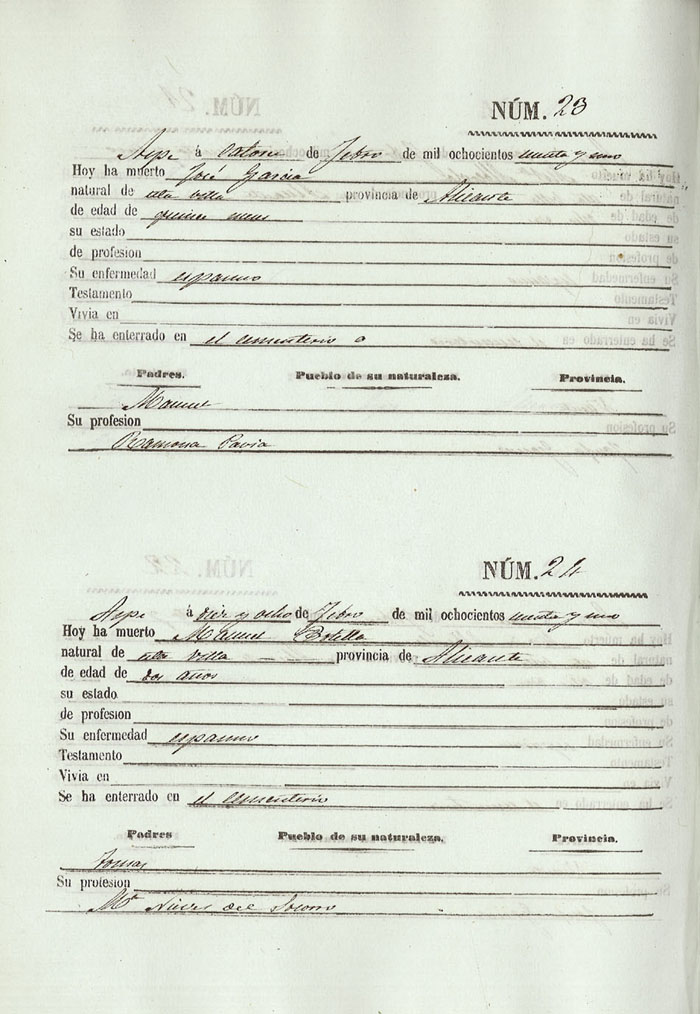 NÚM. 23
Aspe á Catorce de Febro de mil ochocientos senta y uno
Hoy ha muerto José Garcia
natural de esta villa provincia de Alicante
de edad de quince meses
su estado
de profesion
Su enfermedad espasmo
Testamento
Vivia en
Se ha enterrado en el cementerio
Padres. Pueblo de su naturaleza. Provincia.
Manuel
Su profesion
Ramona Pavia
NÚM. 24
Aspe á diez y ocho de Febro de mil ochocientos senta y uno
Hoy ha muerto Manuel Botella
natural de esta villa provincia de Alicante
de edad de dos años
su estado
de profesion
Su enfermedad espasmo
Testamento
Vivia en
Se ha enterrado en el cementerio
Padres Pueblo de su naturaleza. Provincia.
Tomas
Su profesion
Mª Nieves del